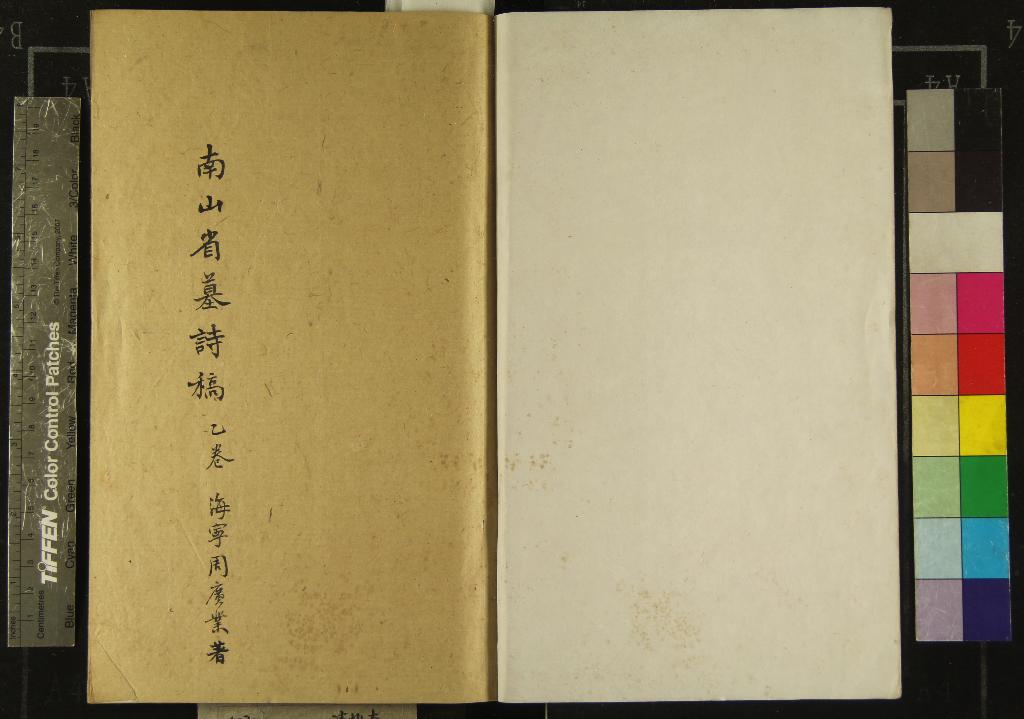 南山省墓詩稿 乙卷 海寧周廣業著
TIFFEN Color Control Patches
© The Tiffen Company, 2007
Blue Cyan Green Yellow Red Magenta White 3/Color Black
Inches
Centimetres
A4
A4
B